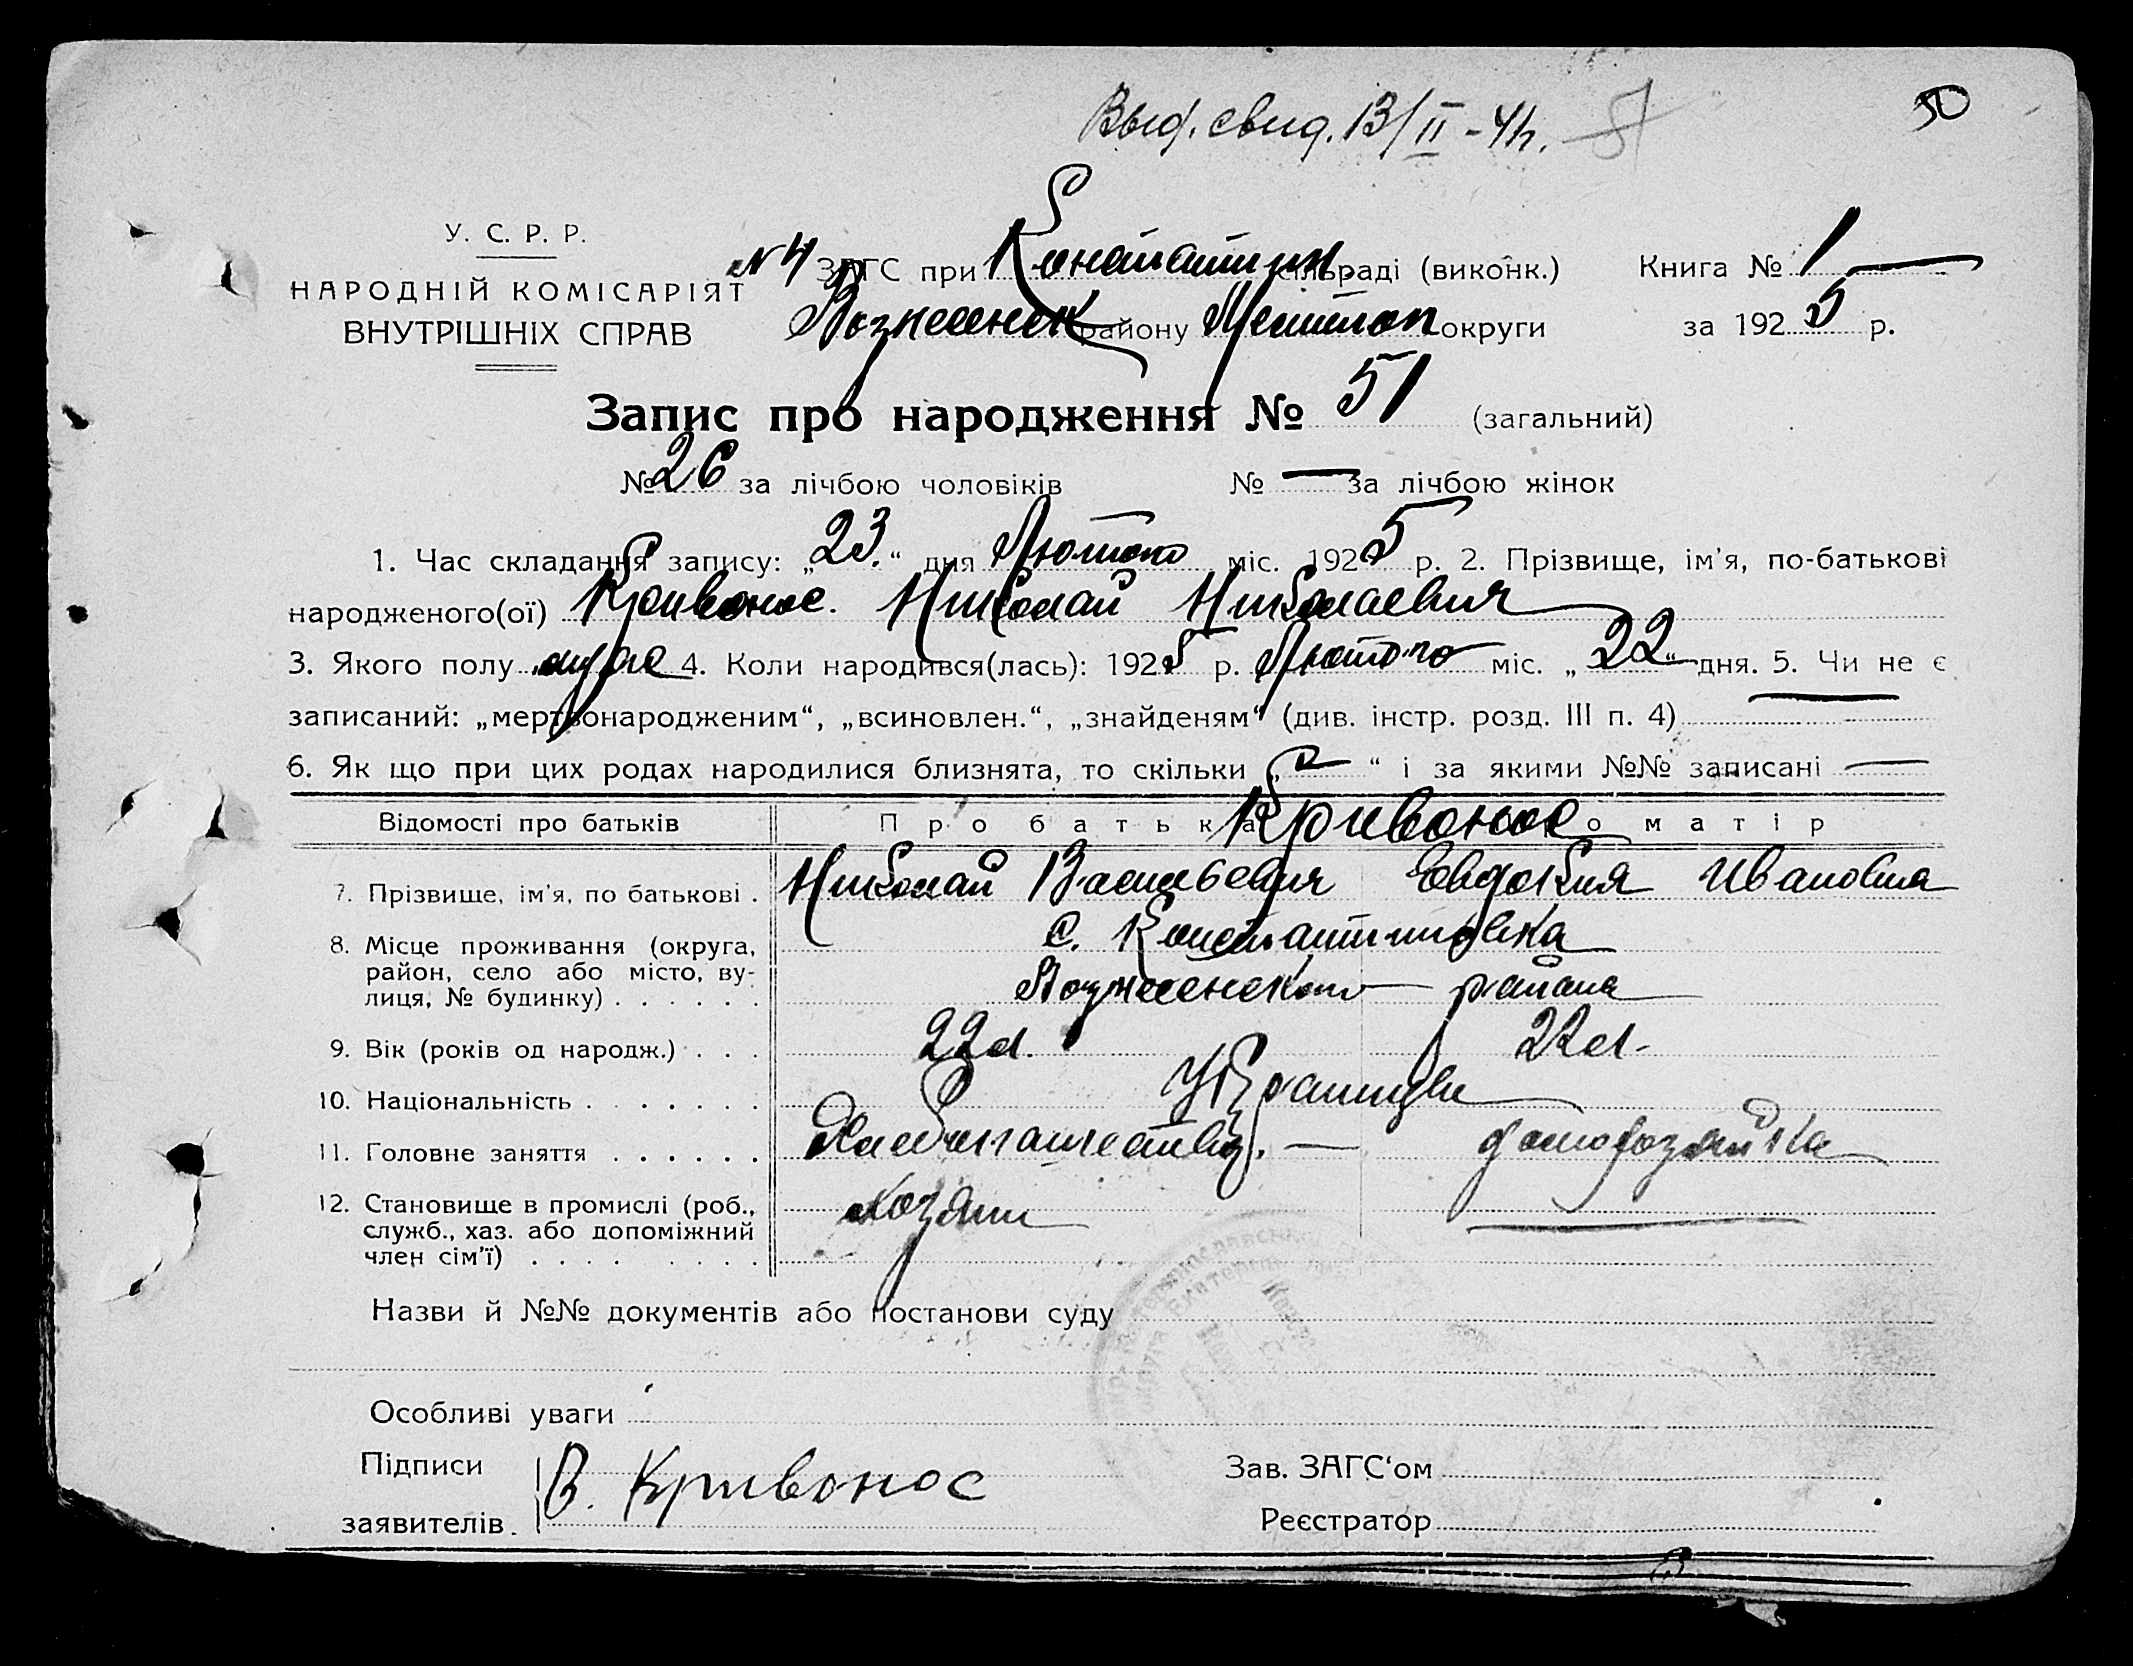 Выд. свид. 13/II-41г. 51
50
У. С. Р. Р.
НАРОДНІЙ КОМІСАРІЯТ
ВНУТРІШНІХ СПРАВ
№4 ЗАГС при Констатин. сільраді (виконк.)
Книга № 1 —
Вознесенск району Мелитоп округи
за 1925 р.
Запис про народження № 51 (загальний)
№ 26 за лічбою чоловіків № — за лічбою жінок
1. Час складання запису: „23.“ дня Лютого міс. 1925 р. 2. Прізвище, ім'я, по-батькові
народженого(ої) Кривонос. Николай Николаевич
3. Якого полу муже 4. Коли народився(лась): 1925 р. Лютого міс. „22“ дня. 5. Чи не є
записаний: „мертвонародженим“, „всиновлен.“, „знайденям“ (див. інстр. розд. III п. 4) —
6. Як що при цих родах народилися близнята, то скільки „—“ і за якими №№ записані —
Відомості про батьків Про батька Про матір
Кривонос
7. Прізвище, ім'я, по батькові . Николай Васильевич Евдокия Ивановна
8. Місце проживання (округа, район, село або місто, вулиця, № будинку) . . . . . . с. Константиновка
Вознесенского района
9. Вік (років од народж.) . . . 22л. 22л.
10. Національність . . . . . . . Украинцы
11. Головне заняття . . . . . . Хлебопашество. — домохозяйка
12. Становище в промислі (роб., служб., хаз. або допоміжний член сім'ї) . . . . . . . . хозяин —
Назви й №№ документів або постанови суду
Особливі уваги
Підписи
заявителів. В. Кривонос
Зав. ЗАГС'ом
Реєстратор